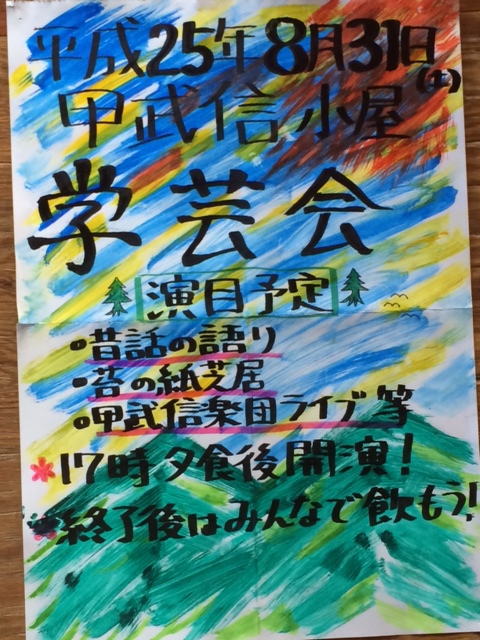 平成25年8月31日(土)
甲武信小屋
学芸会
演目予定
・昔話の語り
・苔の紙芝居
・甲武信楽団ライブ 等
*17時夕食後開演!
*終了後はみんなで飲もう!